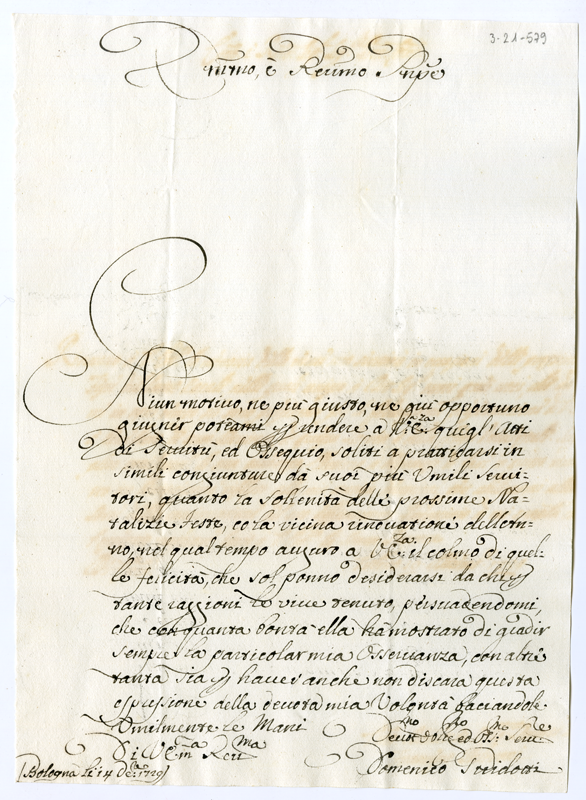 3-21-579
Emmo, è Reumo Pnpe
Niun motivo, ne più giusto, ne più opportuno
giugnir poteami p rendere a V.Eza quegl'Atti
di Servitù, ed Ossequio, soliti a pratticarsi in
simili congiunture dà suoi più Umili Servi-
tori, quanto la sollenità delle prossime Na-
talizie Feste, co la vicina rinovatione dell'An-
no, nel qual tempo auguro a V.Eza il colmo di quel-
le felicità, che sol ponno desiderarsi da chi p
tante raggioni le vive tenuto, persuadendomi,
che con quanta bontà ella hà mostrato di gradir
sempre la particolar mia Osservanza, con altret
tanta sia p haver anche non discara questa
espressione della devota mia Volontà baciandole
Umilmente le Mani
Di V Ema Reuma
Bologna li 14 Xbre 1729
Domenico